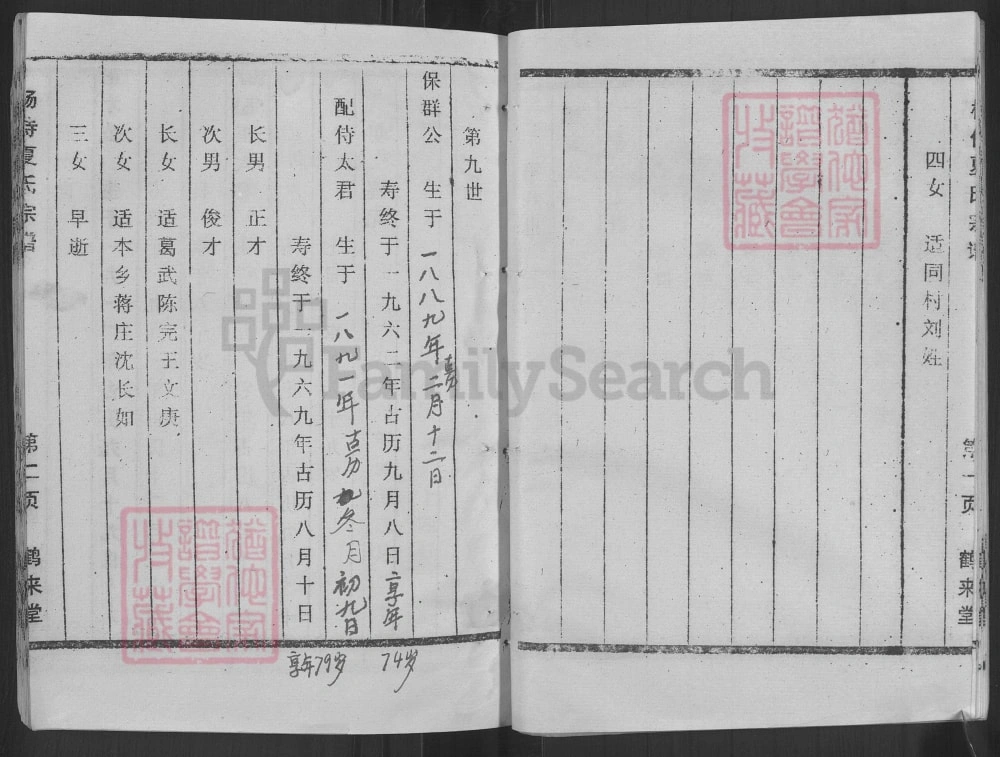 四女 适同村刘姓
第一页 鹤来堂
第九世
保群公 生于一八八九年古历二月十二日
寿终于一九六二年古历九月八日享年
74岁
配侍太君 生于一八九一年古历冬月初九日
寿终于一九六九年古历八月十日
享年79岁
长男 正才
次男 俊才
长女 适葛武陈完王文庚
次女 适本乡蒋庄沈长如
三女 早逝
夏氏宗谱
第二页 鹤来堂
FamilySearch